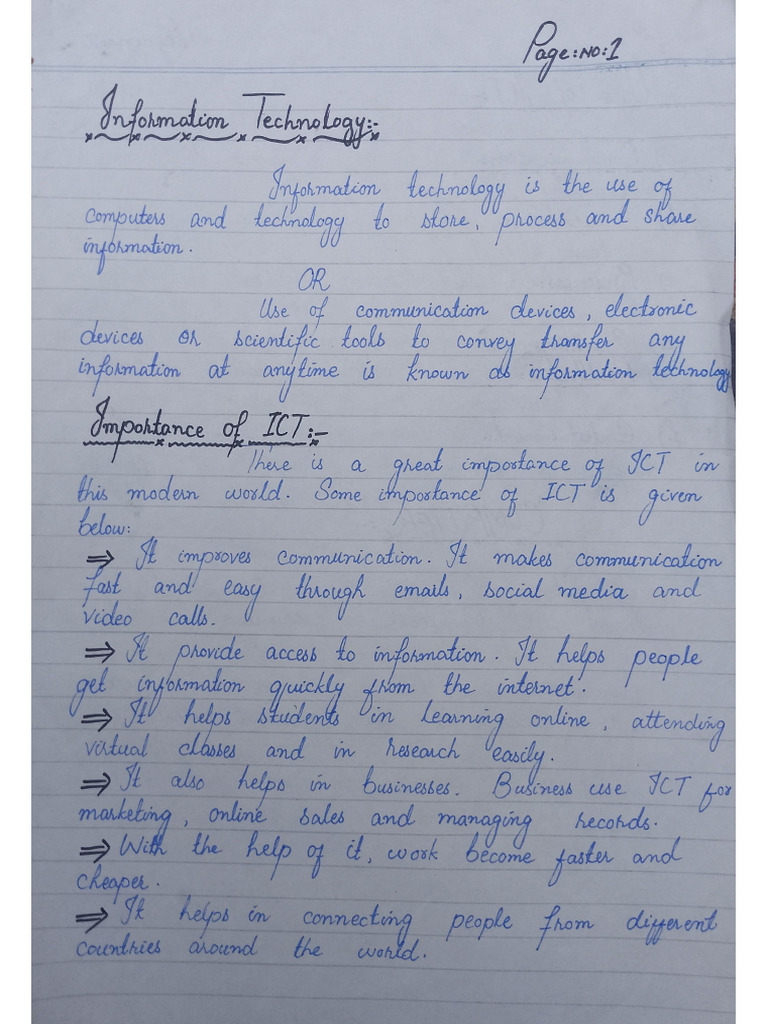 Page:NO:1
Information Technology:-
Information technology is the use of
computers and technology to store, process and share
information.
OR
Use of communication devices, electronic
devices or scientific tools to convey transfer any
information at anytime is known as information technology
Importance of ICT:-
There is a great importance of ICT in
this modern world. Some importance of ICT is given
below:
⇒ It improves communication. It makes communication
fast and easy through emails, social media and
video calls.
⇒ It provide access to information. It helps people
get information quickly from the internet.
⇒ It helps students in learning online, attending
virtual classes and in research easily.
⇒ It also helps in businesses. Business use ICT for
marketing, online sales and managing records.
⇒ With the help of it, work become faster and
cheaper.
⇒ It helps in connecting people from different
countries around the world.